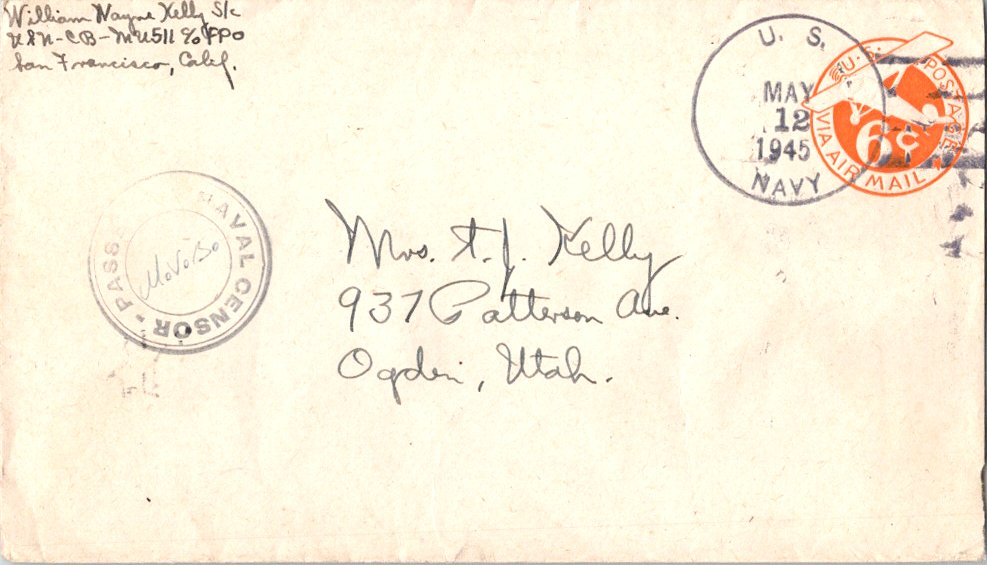 William Wayne Kelly S1c
USN-CB-MU511 c/o FPO
San Francisco, Calif.
U. S.
MAY
12
1945
NAVY
U.S. POSTAGE
6¢
VIA AIR MAIL
PASSED NAVAL CENSOR
Mrs. T. J. Kelly
937 Patterson Ave.
Ogden, Utah.